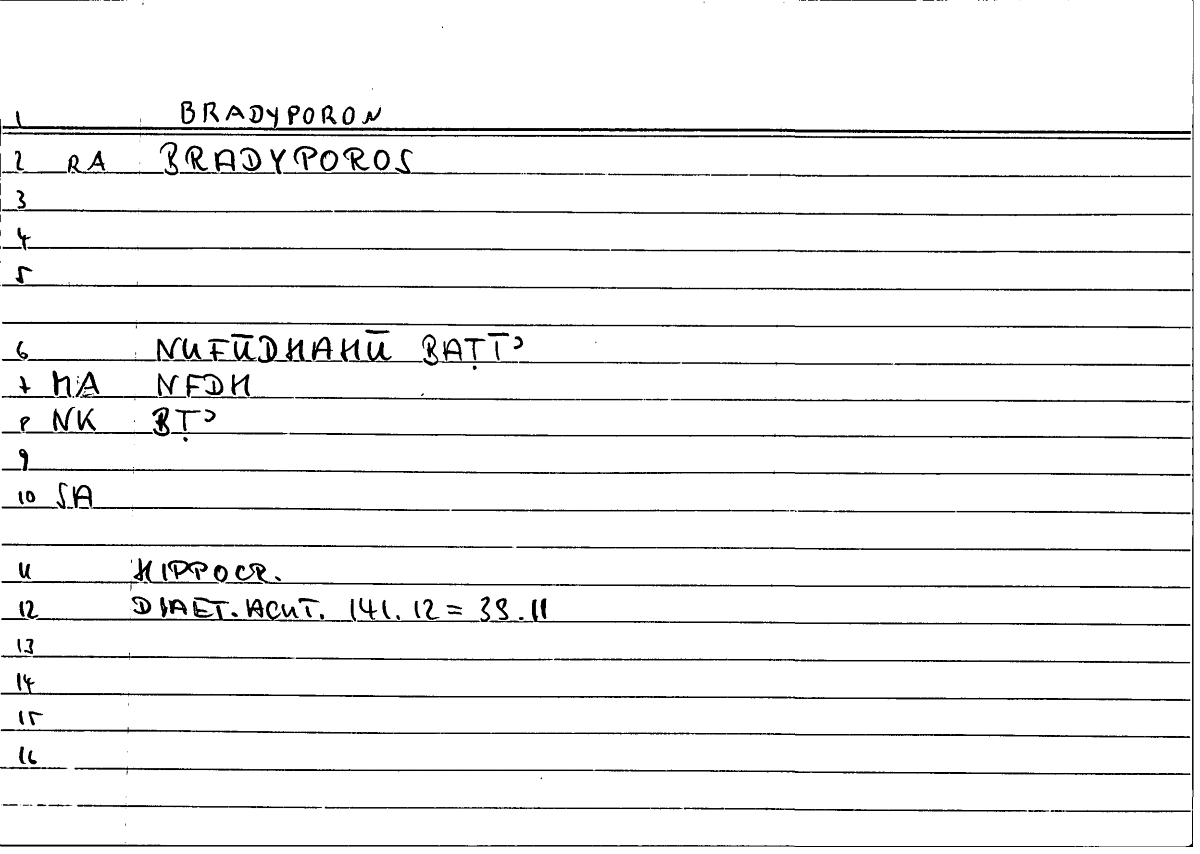 1 BRADYPORON
2 RA BRADYPOROS
3
4
5
6 NUFŪDHAHŪ BAṬĪʾ
7 HA NFDH
8 NK BṬʾ
9
10 SA
11 HIPPOCR.
12 DIAET. ACUT. 141.12 = 39.11
13
14
15
16